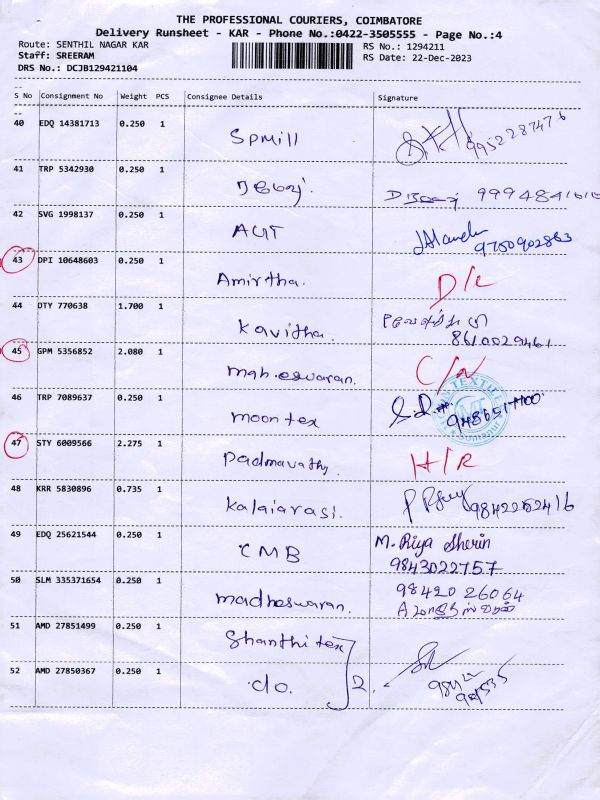 THE PROFESSIONAL COURIERS, COIMBATORE
Delivery Runsheet - KAR - Phone No.:0422-3505555 - Page No.:4
Route: SENTHIL NAGAR KAR RS No.: 1294211
Staff: SREERAM RS Date: 22-Dec-2023
DRS No.: DCJB129421104
S No Consignment No Weight PCS Consignee Details Signature
40 EDQ 14381713 0.250 1 Spmill 9952287476
41 TRP 5342930 0.250 1
42 SVG 1998137 0.250 1 AGT 9750902863
43 DPI 10648603 0.250 1 Amirtha. D/L
44 OTY 770638 1.700 1 Kavitha. 8610029461
45 GPM 5356852 2.080 1 maheswaran. C/N
46 TRP 7089637 0.250 1 moontex
47 STY 6009566 2.275 1 Padmavathy. H/R
48 KRR 5830896 0.735 1 Kalaiarasi. 9842252416
49 EDQ 25621544 0.250 1 CMB M. Riya Sherin
9843022757
50 SLM 335371654 0.250 1 madheswaran. 98420 26064
51 AMD 27851499 0.250 1 Shanthi tex
52 AMD 27850367 0.250 1 do. 2.